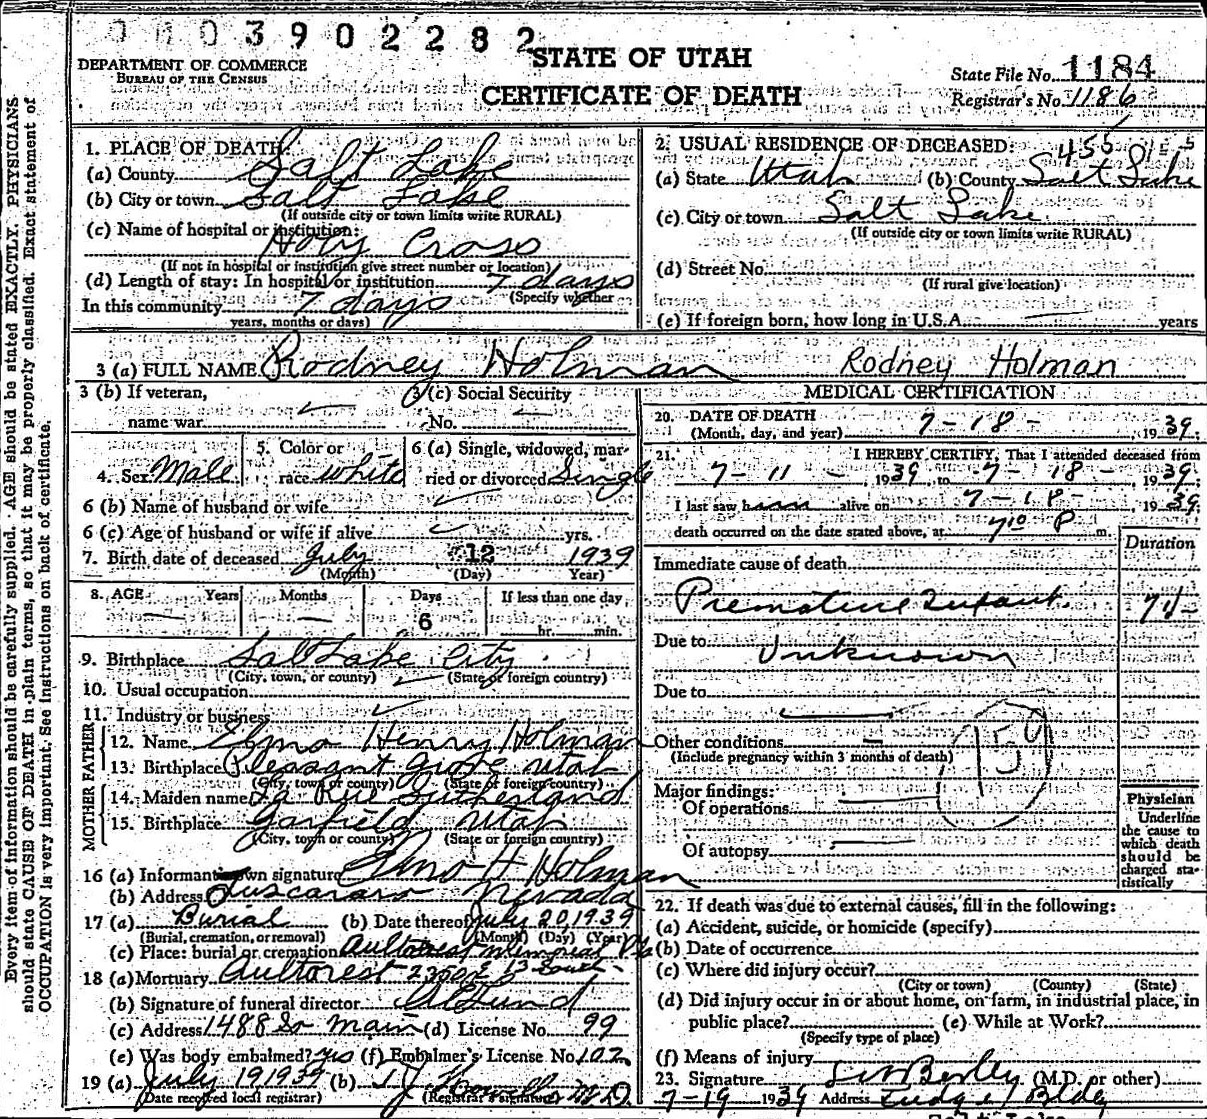 0 1 0 3 9 0 2 2 8 2
STATE OF UTAH
CERTIFICATE OF DEATH
DEPARTMENT OF COMMERCE
BUREAU OF THE CENSUS
State File No. 1184
Registrar's No. 1186
Every item of information should be carefully supplied. AGE should be stated EXACTLY. PHYSICIANS
should state CAUSE OF DEATH in plain terms, so that it may be properly classified. Exact statement of
OCCUPATION is very important. See instructions on back of certificate.
1. PLACE OF DEATH:
(a) County Salt Lake
(b) City or town Salt Lake
(If outside city or town limits write RURAL)
(c) Name of hospital or institution:
Holy Cross
(If not in hospital or institution give street number or location)
(d) Length of stay: In hospital or institution 7 days
(Specify whether
In this community 7 days
years, months or days)
2. USUAL RESIDENCE OF DECEASED:
(a) State Utah (b) County Salt Lake
(c) City or town Salt Lake
(If outside city or town limits write RURAL)
(d) Street No.
(If rural give location)
(e) If foreign born, how long in U.S.A. years
3 (a) FULL NAME Rodney Holman Rodney Holman
3 (b) If veteran,
name war
3 (c) Social Security
No.
4. Sex Male
5. Color or
race white
6 (a) Single, widowed, mar-
ried or divorced Single
6 (b) Name of husband or wife
6 (c) Age of husband or wife if alive yrs.
7. Birth date of deceased July 12 1939
(Month) (Day) Year)
8. AGE Years Months Days If less than one day
6
hr. min.
9. Birthplace Salt Lake City
(City, town, or county) (State or foreign country)
10. Usual occupation
11. Industry or business
FATHER
12. Name Elmo Henry Holman
13. Birthplace Pleasant Grove Utah
(City, town or county) (State or foreign country)
MOTHER
14. Maiden name La Rue Sutherland
15. Birthplace Garfield Utah
(City, town or county) (State or foreign country)
16 (a) Informant own signature Elmo H Holman
(b) Address Tuscarara Nevada
17 (a) Burial (b) Date thereof July 20, 1939
(Burial, cremation, or removal) (Month) (Day) (Year)
(c) Place: burial or cremation Aultorest Memorial
18 (a) Mortuary Aultorest 2350 E 13 South
(b) Signature of funeral director
(c) Address 1488 So Main (d) License No. 99
(e) Was body embalmed? yes (f) Embalmer's License No. 102
19 (a) July 19 1939 (b) M.D.
(Date received local registrar) (Registrar's signature)
MEDICAL CERTIFICATION
20. DATE OF DEATH
(Month, day, and year) 7-18- , 1939;
21. I HEREBY CERTIFY, That I attended deceased from
7-11-, 1939, to 7-18-, 1939;
I last saw him alive on 7-18-, 1939;
death occurred on the date stated above, at 7 10 P m.
Duration
Immediate cause of death
Premature Infant
Due to Unknown
Due to
Other conditions
(Include pregnancy within 3 months of death)
159
Major findings:
Of operations
Of autopsy
Physician
Underline
the cause to
which death
should be
charged sta-
tistically
22. If death was due to external causes, fill in the following:
(a) Accident, suicide, or homicide (specify)
(b) Date of occurrence
(c) Where did injury occur?
(City or town) (County) (State)
(d) Did injury occur in or about home, on farm, in industrial place, in
public place? (e) While at Work?
(Specify type of place)
(f) Means of injury
23. Signature (M.D. or other)
7-19 1939 Address Judge Bldg